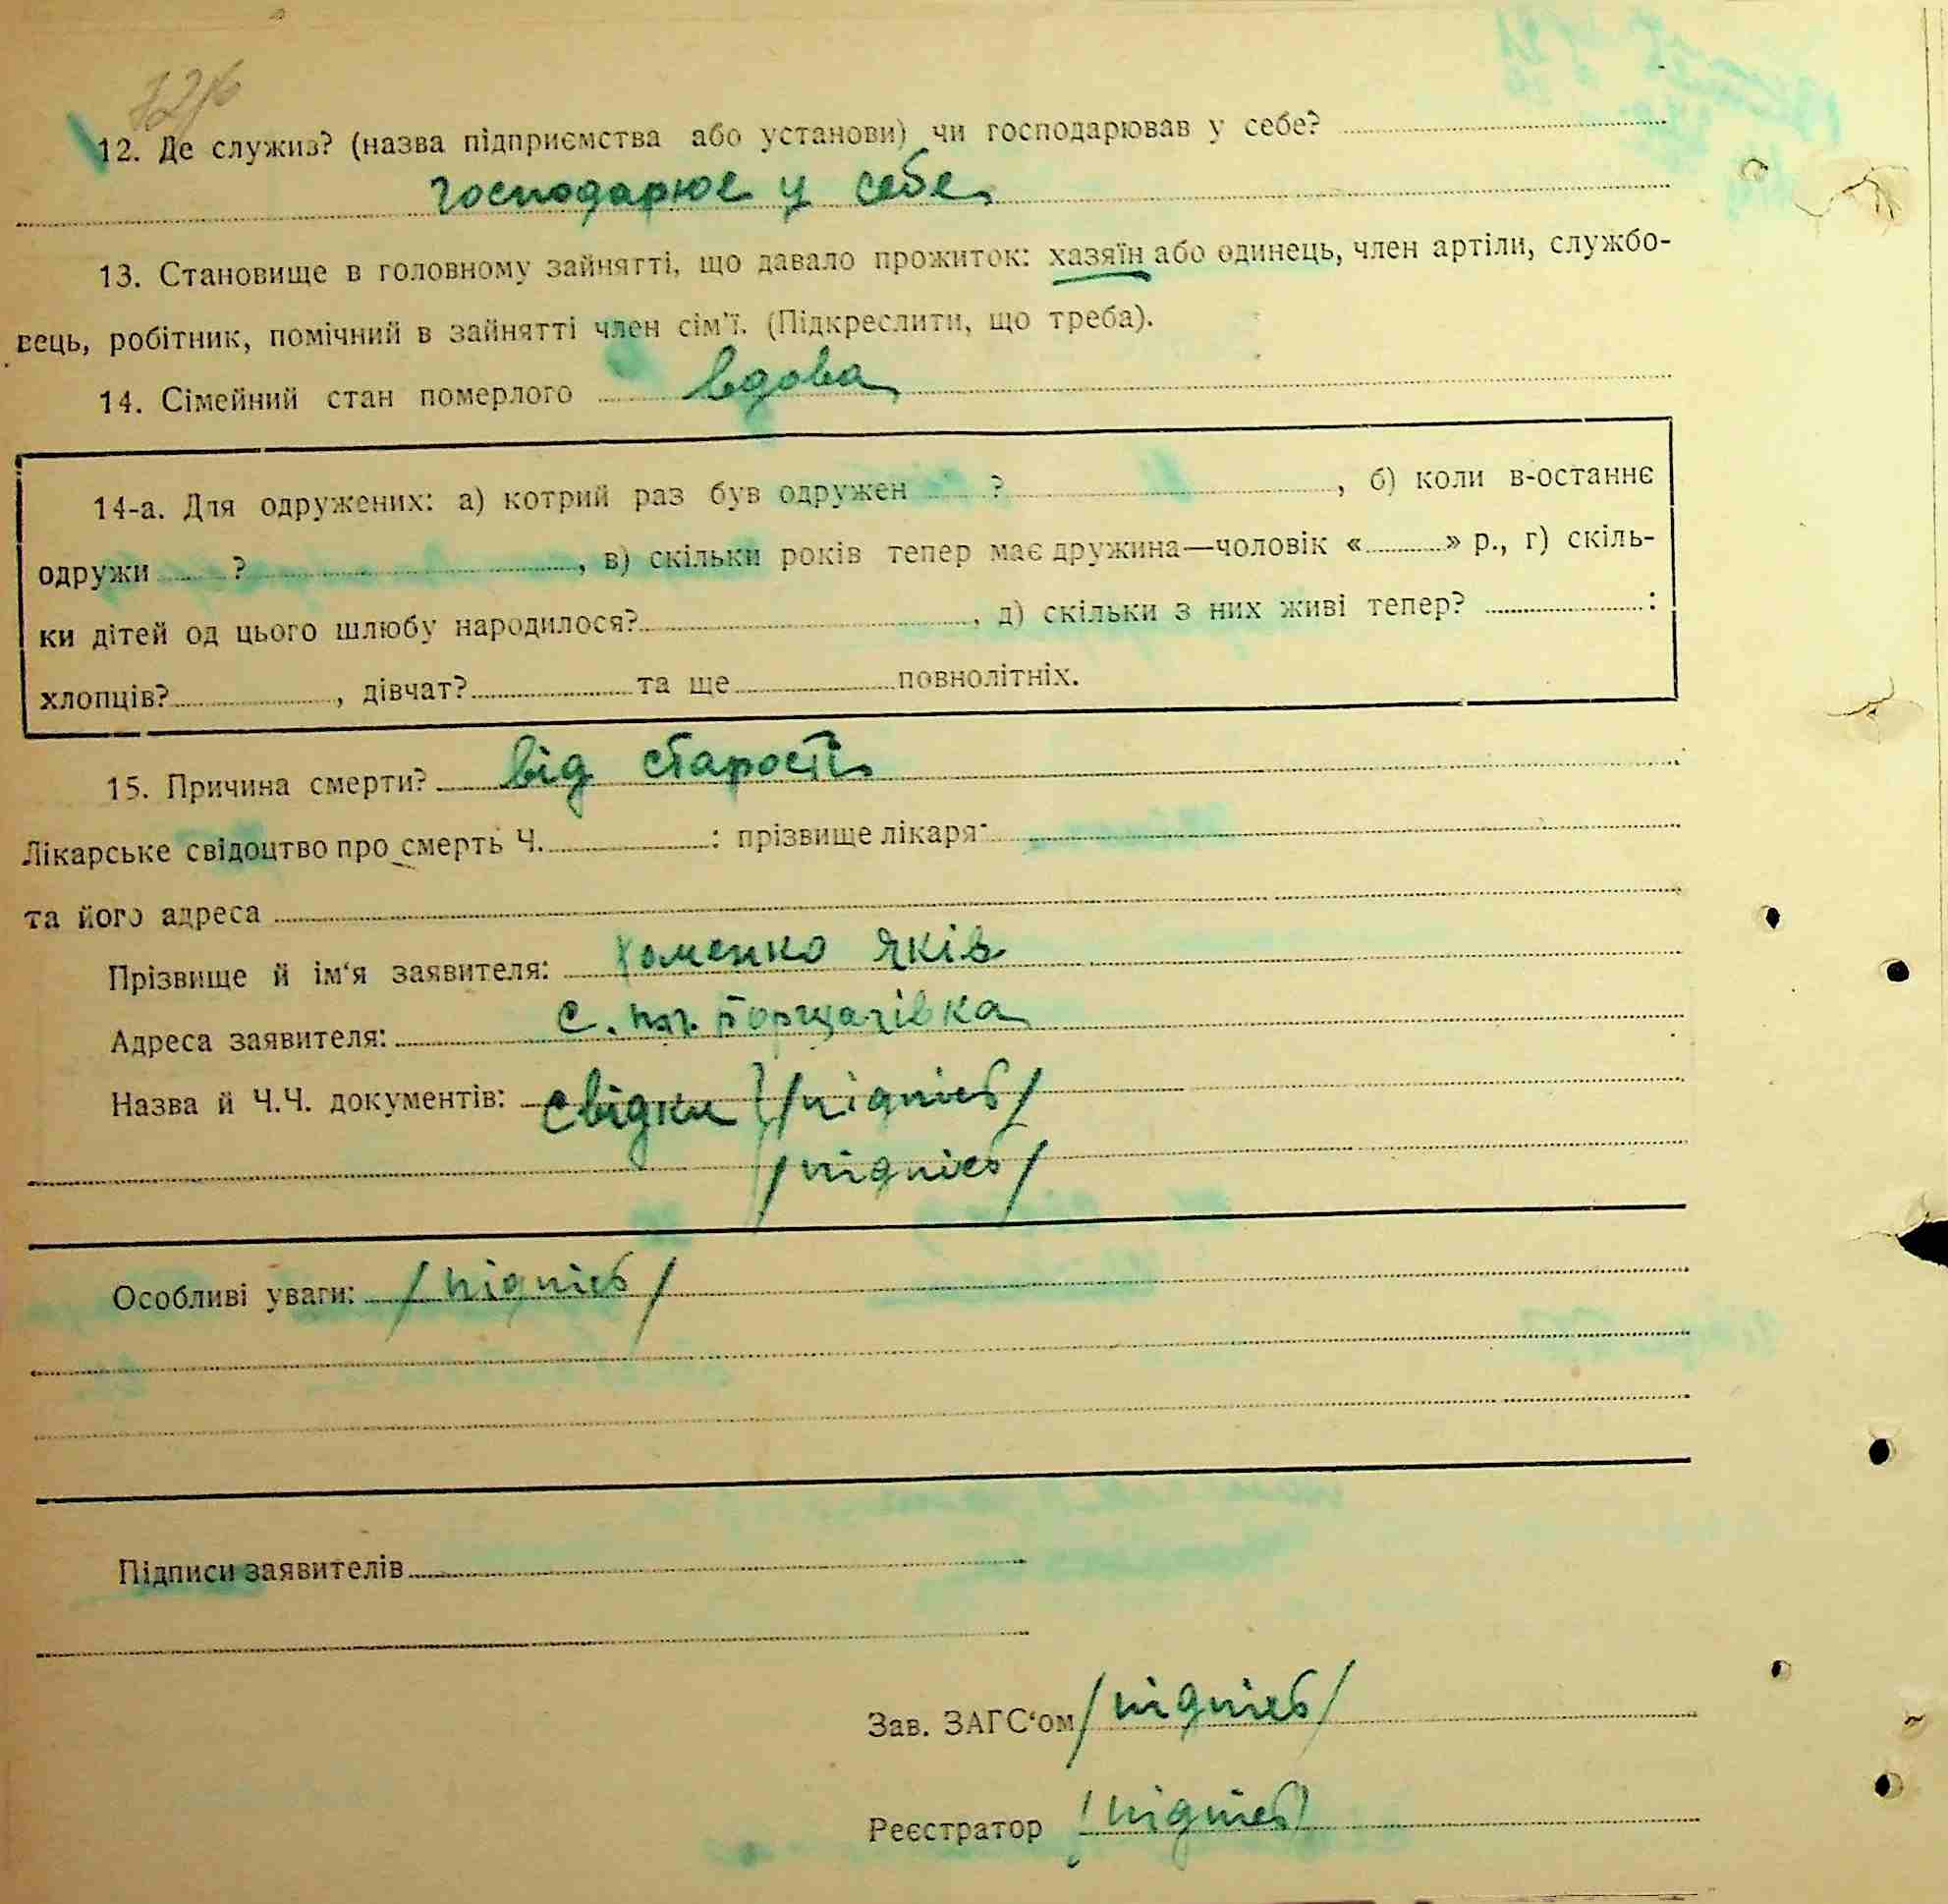 12. Де служив? (назва підприємства або установи) чи господарював у себе?
господарює у себе
13. Становище в головному зайнятті, що давало прожиток: хазяїн або одинець, член артіли, службо-
вець, робітник, помічний в зайнятті член сім'ї. (Підкреслити, що треба).
14. Сімейний стан померлого вдова
14-а. Для одружених: а) котрий раз був одружен ? , б) коли в-останнє
одружи ? , в) скільки років тепер має дружина—чоловік « » р., г) скіль-
ки дітей од цього шлюбу народилося? , д) скільки з них живі тепер? :
хлопців? , дівчат? та ще повнолітніх.
15. Причина смерти? від старости
Лікарське свідоцтво про смерть Ч. : прізвище лікаря
та його адреса
Прізвище й ім'я заявителя: Хоменко Яків
Адреса заявителя: с. Борщагівка
Назва й Ч.Ч. документів: свідки /підпись/
/підпись/
Особливі уваги: /підпись/
Підписи заявителів
Зав. ЗАГС'ом /підпись/
Реєстратор /підпись/